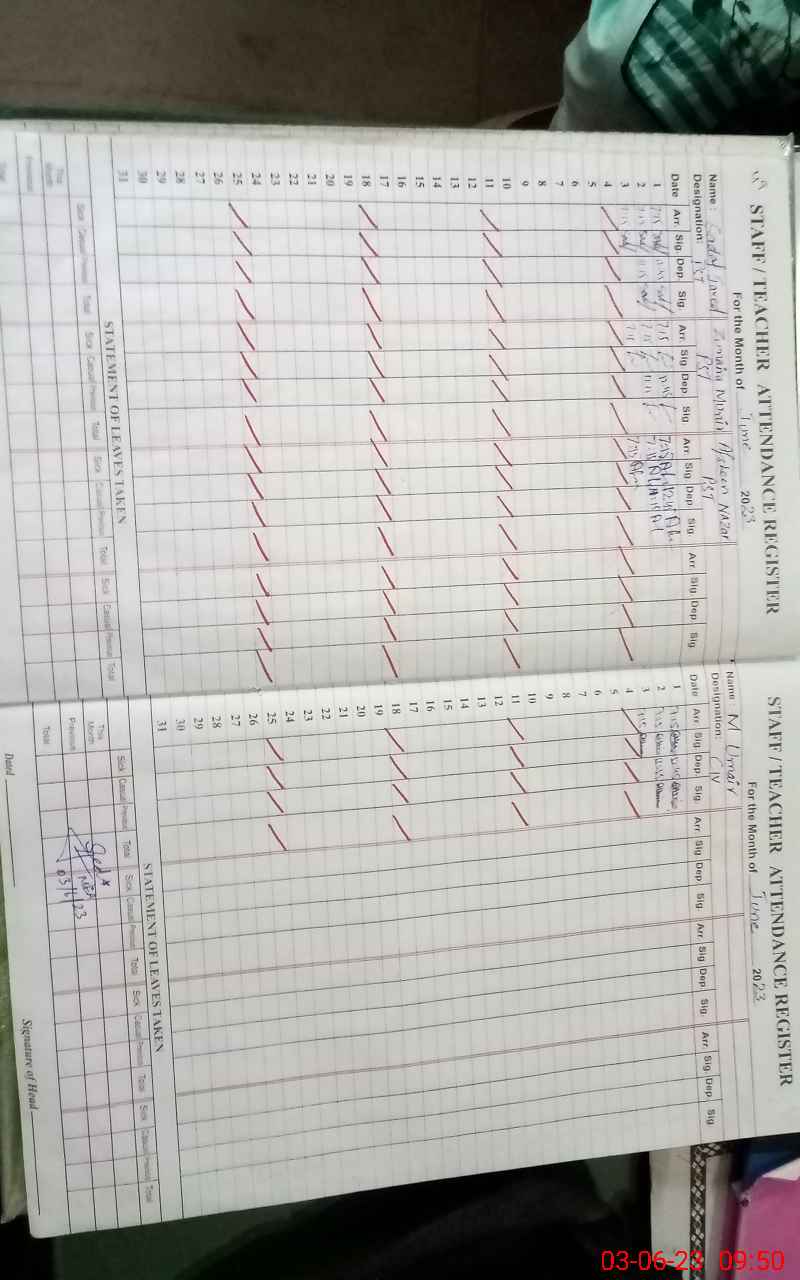 STAFF / TEACHER ATTENDANCE REGISTER
For the Month of June 2023
Name : Javed Zumaira Munir Afsheen NAZar
Designation: PST PST PST
Date Arr. Sig. Dep. Sig. Arr. Sig. Dep. Sig. Arr. Sig. Dep. Sig. Arr. Sig. Dep. Sig.
1 7:15 7:15 7:15
2 7:15 7:15 7:15
3 7:15 7:15 7:15
4
5
6
7
8
9
10
11
12
13
14
15
16
17
18
19
20
21
22
23
24
25
26
27
28
29
30
31
STATEMENT OF LEAVES TAKEN
Sick Casual Period Total Sick Casual Period Total Sick Casual Period Total Sick Casual Period Total
This Month
Previous
Total
STAFF / TEACHER ATTENDANCE REGISTER
For the Month of June 2023
Name : M Umair
Designation: C IV
Date Arr. Sig. Dep. Sig. Arr. Sig. Dep. Sig. Arr. Sig. Dep. Sig. Arr. Sig. Dep. Sig
1 7:15
2 7:15
3 7:15
4
5
6
7
8
9
10
11
12
13
14
15
16
17
18
19
20
21
22
23
24
25
26
27
28
29
30
31
STATEMENT OF LEAVES TAKEN
Sick Casual Period Total Sick Casual Period Total Sick Casual Period Total Sick Casual Period Total
This Month
Previous
Total
MEA
03/6/23
Dated Signature of Head
03-06-23 09:50